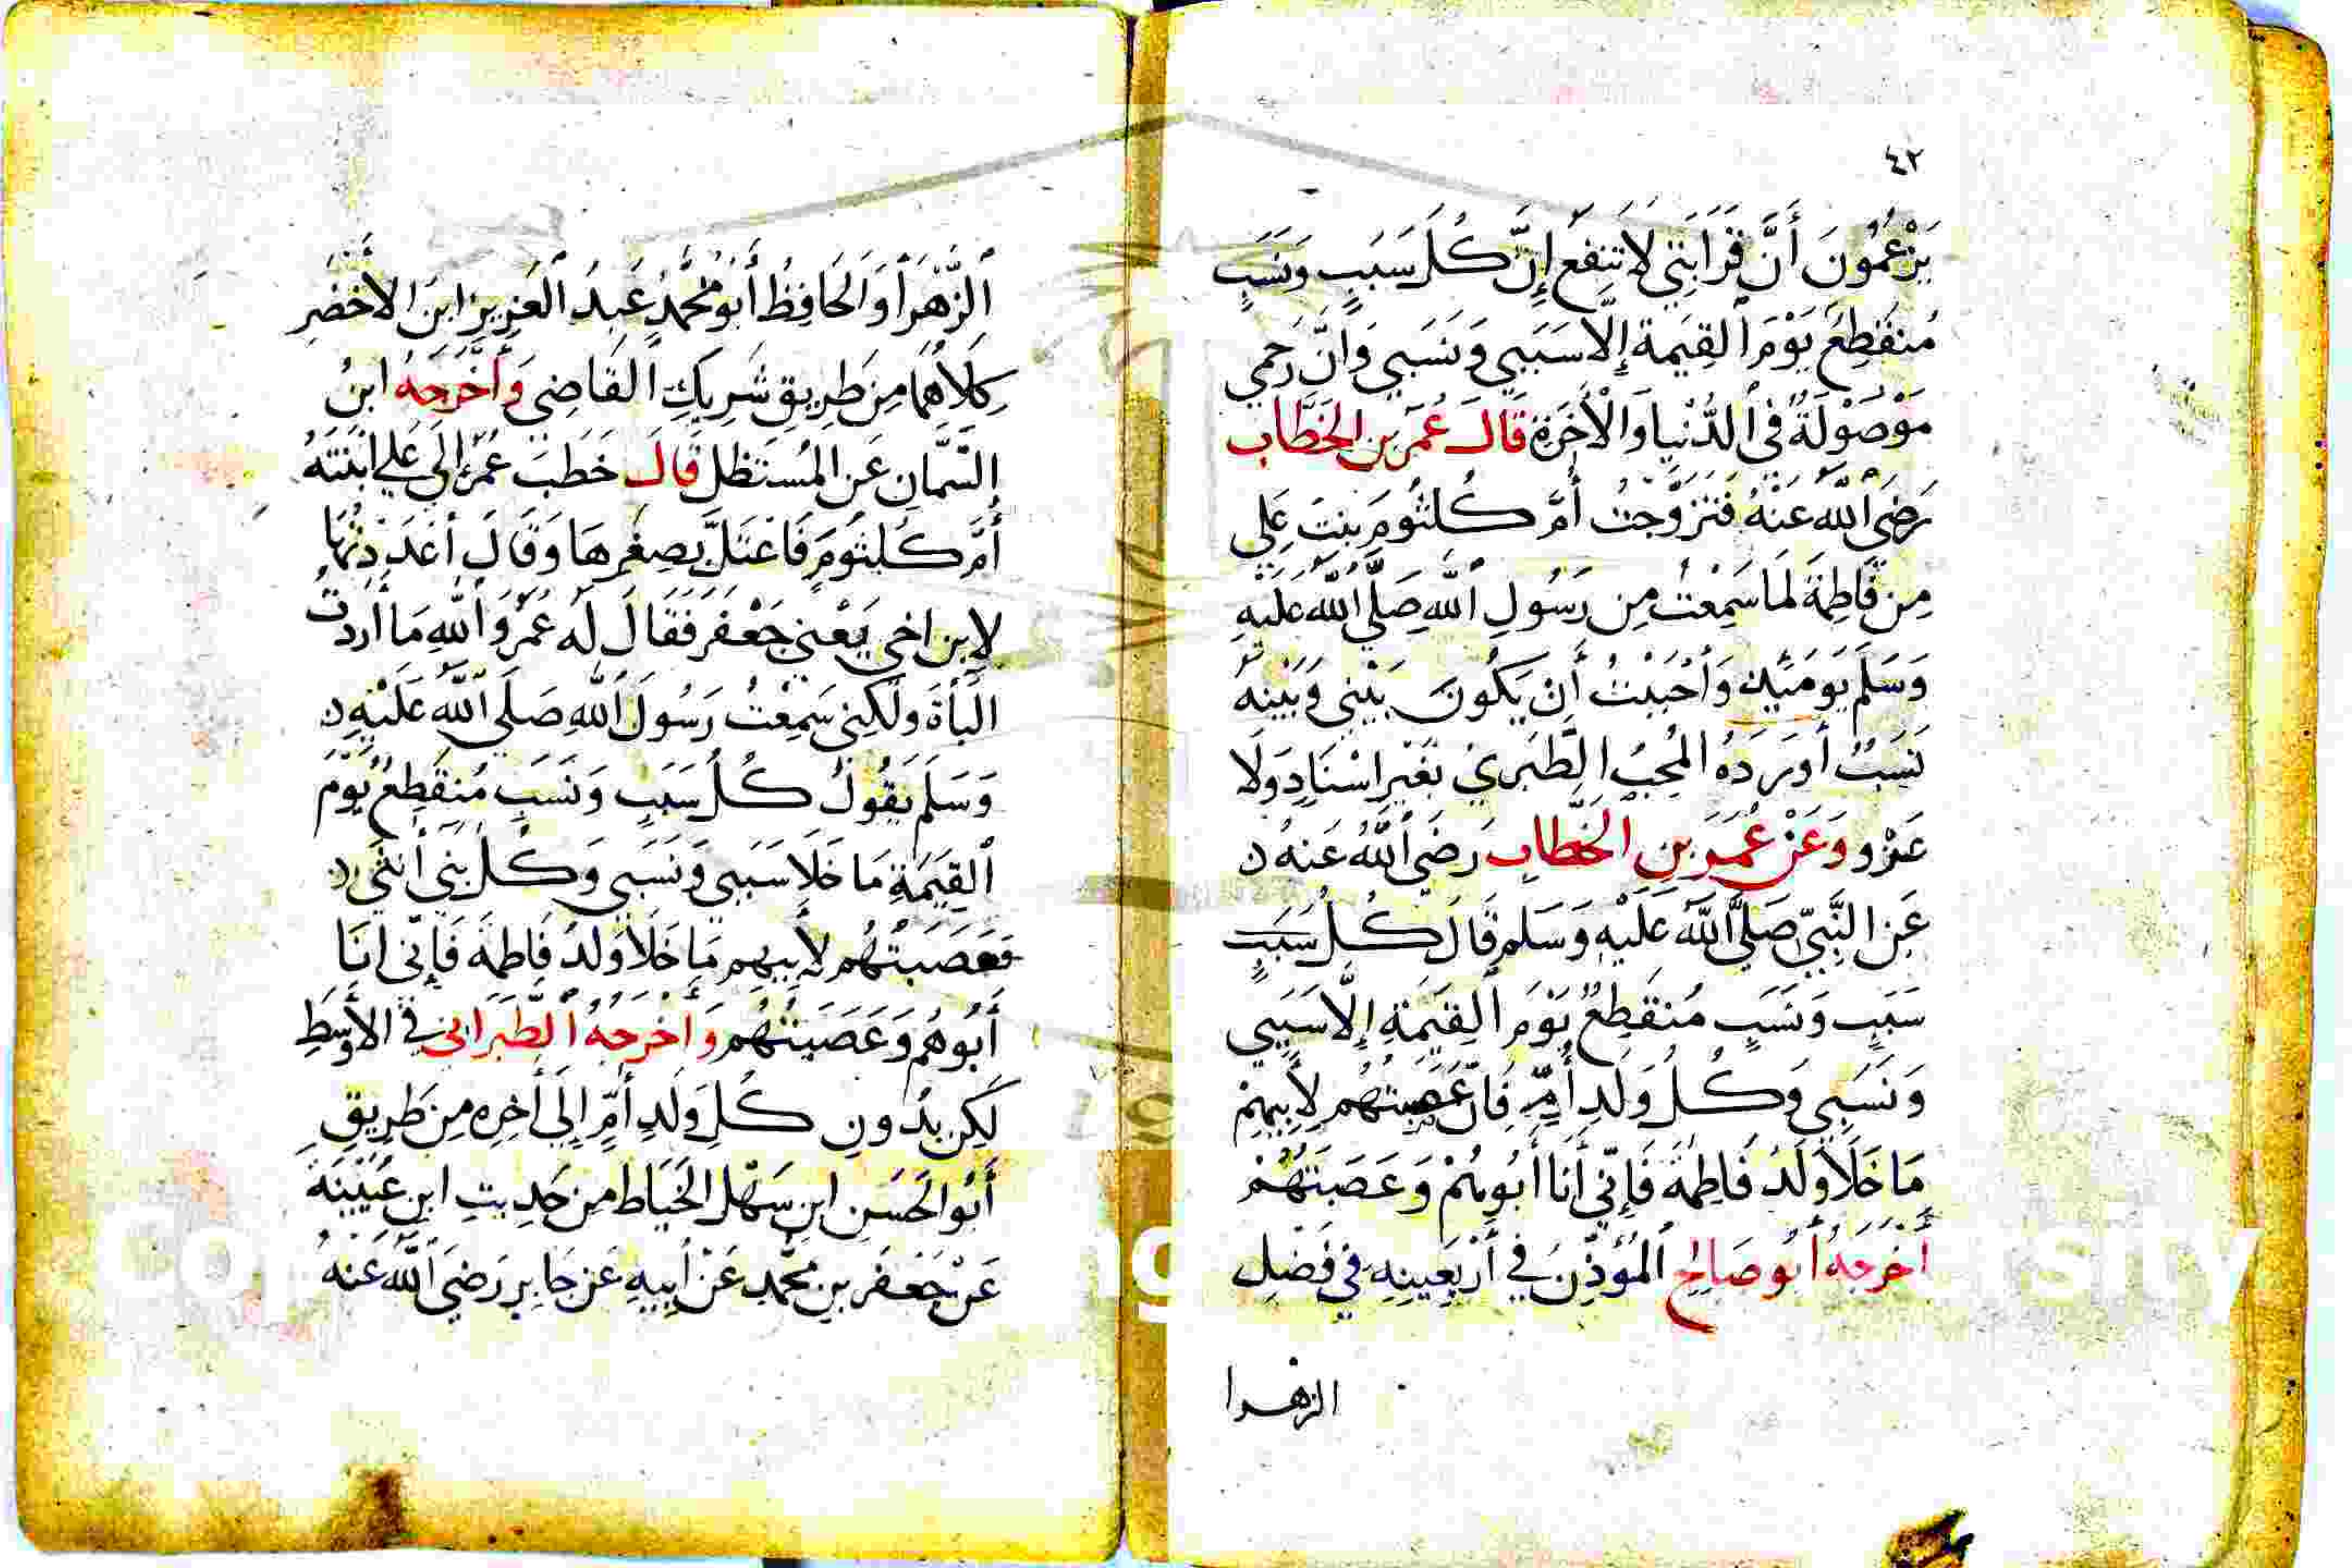 ٤٢
يَزْعُمُونَ أَنَّ قَرَابَتِي لَا تَنْفَعُ إِنَّ كُلَ سَبَبٍ وَنَسَبٍ
مُنقَطِعٌ يَوْمَ الْقِيمَةِ إِلَّا سَبَبِي وَنَسَبِي وَانَّ رَحِمِي
مَوْصُولَةٌ فِي الدُّنْيَا وَالْأَخِرَةِ قَالَ عُمَرَ بنِ الخَطَّابِ
رَضِيَ اللَّهُ عَنْهُ فَتَزَوَّجْتُ أُمَّ كُلثُومَ بِنتَ عَلِي
مِن فَاطِمَةَ لَمَا سَمِعْتُ مِن رَسُولِ اللَّهِ صَلَّى اللَّهُ عَلَيْهِ
وَسَلَّمَ يَوْمَئِذٍ وَأَحْبَبْتُ أَنْ يَكُونَ بَيْنِي وَبَيْنَهُ
نَسَبٌ أورَدَهُ المُحِبُ الطَّبَرِيُ بَغَيْرِ اسْنَادٍ وَلَا
عَزْوٍ وَعَنْ عُمَرَ بنِ الخَطَّابِ رَضِيَ اللَّهُ عَنهُ
عَنِ النَّبِيِّ صَلَّى اللَّهُ عَلَيْهِ وَسَلَم قَالَ كُلُ سَبَبٍ
سَبَبٍ وَنَسَبٍ مُنقَطِعٌ يَوْمَ القِيَمَةِ إِلَّا سَبَبِي
وَنَسَبِي وَكُلُ وَلَدِ أُمٍّ فَاِنَّ عَصَبَتهُم لِأَبِيهِمْ
مَا خَلَا وَلَدُ فَاطِمَةَ فَإِنِّي أَنَا أَبُوهُمْ وَعَصَبَتَهُمْ
أَخرَجَهُ أَبُو صَالِحٍ المُؤَذِّنُ فِي أَرْبَعِينِهِ فِي فَضْلِ
الزهرا
الزَّهْرَا وَالحَافِظُ أَبُو مُحَمَّدٍ عَبدُ العَزِيزِ ابنَ الأَخضَرِ
كِلَاهُمَا مِن طَرِيقِ شَرِيكِ القَاضِي وَأَخرَجَهُ ابنُ
السَّمَّانِ عَنِ المُستَظِلِ قَالَ خَطَبَ عُمَرُ إلَى عَلي ابْنَتَهُ
أُمَّ كُلثُومَ فَاعتَلَّ بِصِغَرِهَا وَقَالَ أَعدَدتُهَا
لِابنِ اخي يَعْنِي جَعْفَر فَقَالَ لَه عُمَرُ وَاللَّهِ مَا أَرَدتُ
البَأةَ وَلَكِنِي سَمِعْتُ رَسُولَ اللَّهِ صَلَى اللَّهُ عَلَيْهِ
وَسَلَّمَ يَقُولُ كُلُ سَبَبٍ وَنَسَبٍ مُنقَطِعٌ يَوْمَ
القِيَمَةِ مَا خَلَا سَبَبِي وَنَسَبِي وَكُلُ بَنِي أُنثَى
فَعَصَبَتُهُم لِأَبِيهِم مَا خَلَا وَلَدُ فَاطِمَةَ فَإِنِّي انَا
أَبُوهُم وَعَصَبَتُهُم وَأَخرَجَهُ الطَّبَرَانِي فِي الأَوسَطِ
لَكِن بدُونِ كُلِ وَلَدِ أُمٍّ إِلَى أَخِرِهِ مِن طَرِيقِ
أَبُو الحَسَنِ ابنِ سَهْلِ الخَيَاط مِن حَدِيثِ ابنِ عُيَيْنَةَ
عَنْ جَعفَرِ بنِ مُحَّمدٍ عَنْ أَبِيهِ عَن جَابِرٍ رَضِيَ اللَّهُ عَنهُ